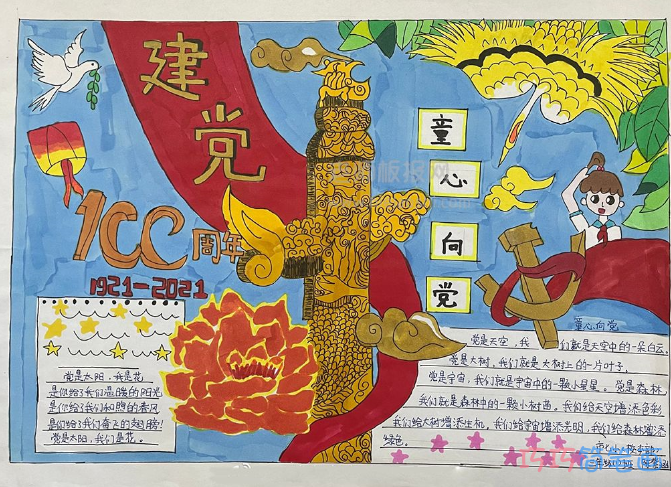 建党
100周年
1921-2021
童心向党
党是太阳,我是花
是你给了我们温暖的阳光
是你给了我们和腾的春风
是你给了我们奋飞的翅膀!
党是太阳,我们是花。
童心向党
党是天空,我们就是天空中的一朵白云,
党是大树,我们就是大树上的一片叶子,
党是宇宙,我们就是宇宙中的一颗小星星。党是森林
我们就是森林中的一颗小树苗。我们给天空增添色彩,
我们给大树增添生机,我们给宇宙增添光明,我们给森林增添
绿色。
巧巧简笔画